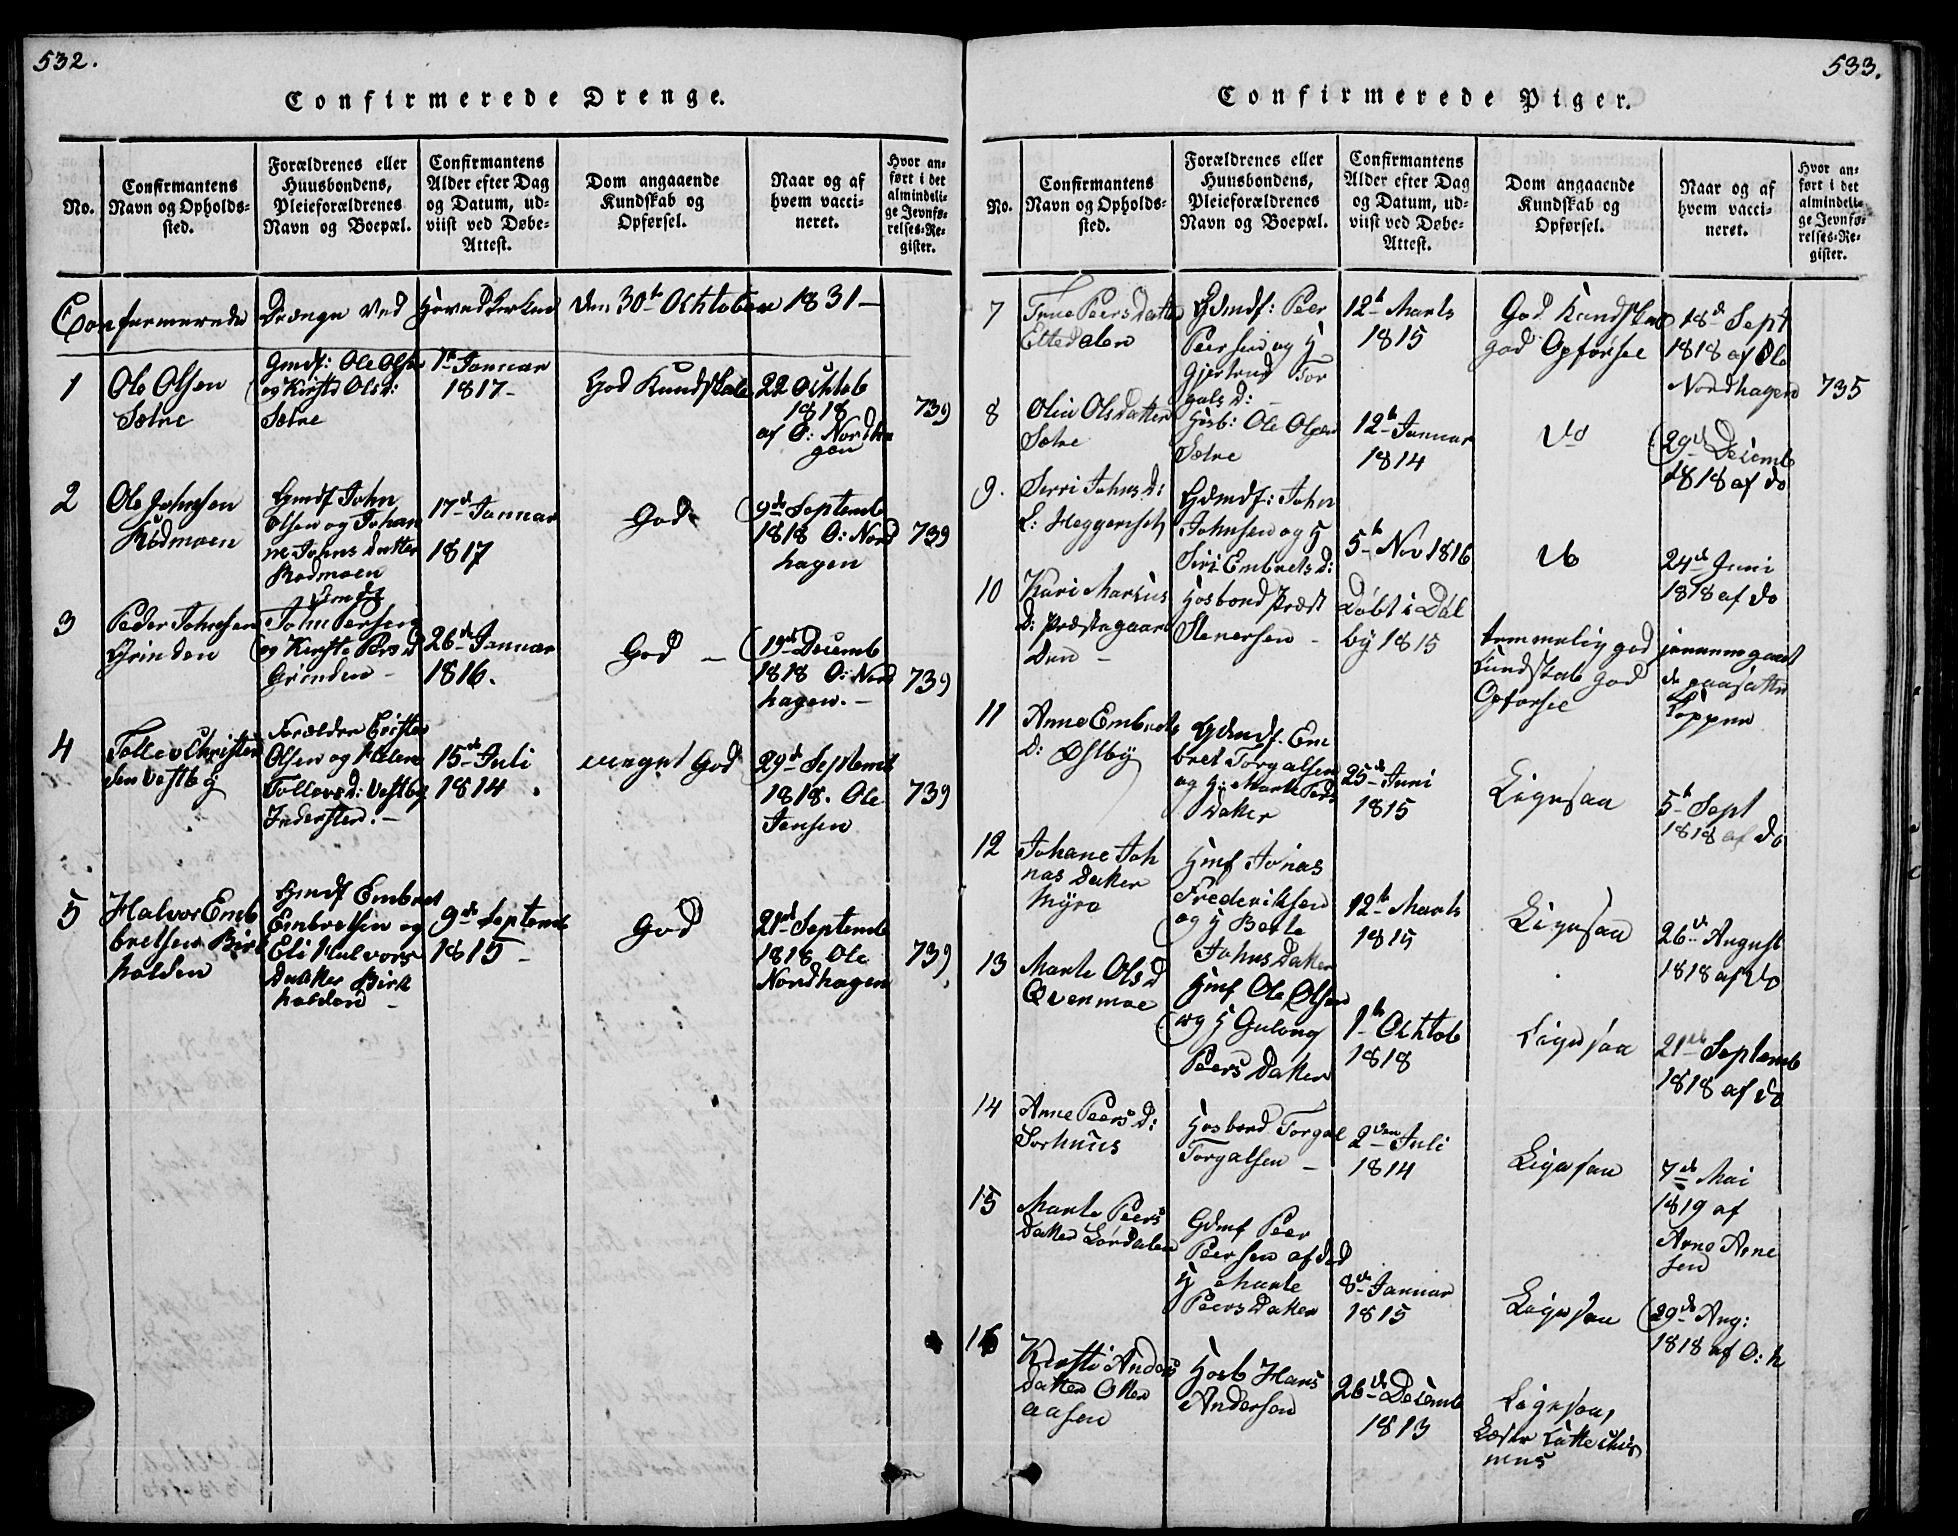 532.
Confirmerede Drenge.
No.
Confirmantens
Navn og Opholds-
sted.
Forældrenes eller
Huusbondens,
Pleieforældrenes
Navn og Boepæl.
Confirmantens
Alder efter Dag
og Datum, ud-
viist ved Døbe-
Attest.
Dom angaaende
Kundskab og
Opførsel.
Naar og af
hvem vacci-
neret.
Hvor an-
ført i det
almindeli-
ge Jevnfø-
relses-Re-
gister.
Confermerede Drænge ved Hovedkerken den 30th Ochtober 1831 –
1
Ole Olsen
Sætre
Gmdf: Ole Olsen
og Kirsti Olsd:
Sætre
1th Januar
1817 –
God Kundskab
22 Ochtob
1818
af O: Nordha
gen
739
2
Ole Johnsen
Rødmoen
Gmdf John
Olsen og Johan
ne Johns Datter
Rødmoen
17d Januar
1817
God
9de Septemb
1818 O: Nord
hagen
739
3
Peder Johnsen
Grinden
Gmdf
John Persen
og Kirsti Persd
Grinden –
26de Januar
1816.
God –
19de Decemb
1818 O: Nord
hagen. –
739
4
Tollev Christen
sen Vestby
Forælder Crister
Olsen og Helene
Tollevsd: Vestby
Indersten. –
15de Juli
1814.
meget God
29de Septemb
1818. Ole
Jensen
739
5
Halvor Emb
bretsen Birk
holden
Gmdf Embret
Embretsen og
Eli Halvors
Datter Birk
holden –
9de Septemb
1815 –
God
21de Septemb
1818 Ole
Nordhagen
739
533.
Confirmerede Piger.
No.
Confirmantens
Navn og Opholds-
sted.
Forældrenes eller
Huusbondens,
Pleieforældrenes
Navn og Boepæl.
Confirmantens
Alder efter Dag
og Datum, ud-
viist ved Døbe-
Attest.
Dom angaaende
Kundskab og
Opførsel.
Naar og af
hvem vacci-
neret.
Hvor an-
ført i det
almindeli-
ge Jevnfø-
relses-Re-
gister.
7
Peers Datter
Eltedalen
Gdmdf: Peer
Peersen og H
Gjertrud Tor
galsD: –
12th Marts
1815
God Kundskab
god Opførsel
18de Sept
1818 af Ole
Nordhagen
735
8
Olin Olsdatter
Sætre
Hosb: Ole Olsen
Sætre
12th Januar
1814
Do
29de Decemb
1818 af do
9.
Sirri JohnsD:
L: Heggerised
Gdmdf: John
Johnsen og H
Siri EmbretsD:
5th Nov 1816
do
24de Juni
1818 af do
10
Kari Marius
D: Præstegaar
den –
Hosbond Præst
Stenersen –
Døbt i Dal
by 1815
temmelig god
Kundskab god
Opførsel
jennemgaaet
de naturlige
Kopper
11
Anne Embrets
D: Østby
Gdmdf. Em
bret Torgalsen
og H: Marte Peds
Datter
25de Juni
1815
Ligesaa
5th Sept
1818 af do
12
Johane Joh
nas Datter
Myre
Hmf Jonas
Frederiksen
og H Berte
Johns Datter
12th Marts
1815
Ligesaa
26de August
1818 af do
13
Marte OlsD
Qvenmoe
Hmf Ole Olsen
og H Gulong
Peers Datter
1th Ochtob
1818
Ligesaa
21de Septemb
1818 af do
14
Anne PeersD:
Sorhuus
Hosbond Torgal
Torgalsen –
2den Juli
1814
Ligesaa
7de Mai
1819 af
Arne Arne
sen
15
Marte Peers
Datter Lørdalen
Gdmf Peer
Peersen af død
H Marte
Peers Datter
8de Januar
1815
Ligesaa
29de Aug:
1818 af O: N
16
Kirsti Anders
Datter Otter
aasen
Hosb Hans
Andersen
26de Decemb
1813
Ligesaa,
Læser Katteches
mus